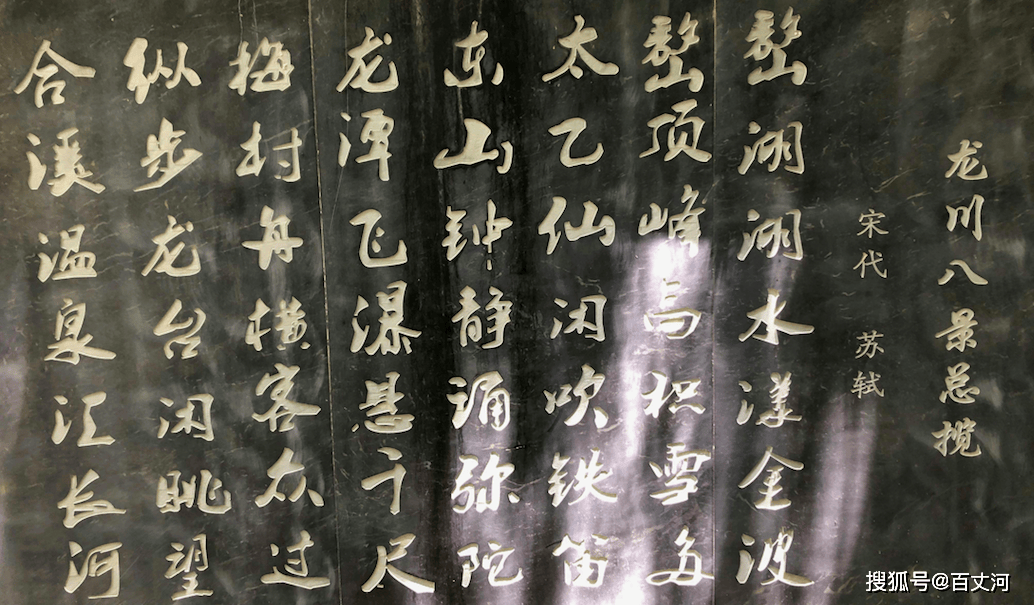 龙川八景总揽
宋代 苏轼
嶅湖湖水漾金波
嶅顶峰高积雪多
太乙仙闲吹铁笛
东山钟静诵弥陀
龙潭飞瀑悬千尺
梅村舟横客众过
纵步龙台闲眺望
合溪温泉汇长河
搜狐号@百丈河